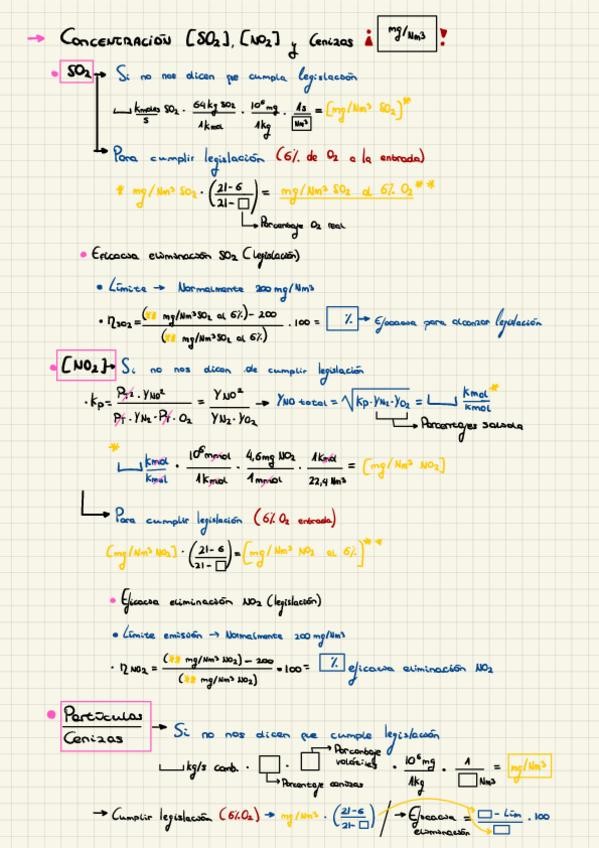 → CONCENTRACIÓN [SO2], [NO2] y Cenizas ¡ mg/Nm3 !
• SO2 → Si no nos dicen que cumpla legislación
kmoles SO2 / s · 64kg SO2 / 1kmol · 10^6 mg / 1kg · 1s / Nm3 = [mg/Nm3 SO2]*
Para cumplir legislación (6% de O2 a la entrada)
* mg/Nm3 SO2 · (21-6 / 21-□) = mg/Nm3 SO2 al 6% O2 **
Porcentaje O2 real
• Eficacia eliminación SO2 (legislación)
• Límite → Normalmente 200 mg/Nm3
• ηSO2 = (** mg/Nm3 SO2 al 6%) - 200 / (** mg/Nm3 SO2 al 6%) · 100 = % → Eficacia para alcanzar legislación
• [NO2] → Si no nos dicen de cumplir legislación
· Kp = PT2 · YNO2 / PT · YN2 · PT · O2 = YNO2 / YN2 · YO2 → YNO total = √Kp · YN2 · YO2 = kmol / kmol *
Porcentajes salida
*
kmol / kmol · 10^6 mmol / 1 kmol · 4,6mg NO2 / 1mmol · 1 kmol / 22,4 Nm3 = [mg/Nm3 NO2]
Para cumplir legislación (6% O2 entrada)
[mg/Nm3 NO2] · (21-6 / 21-□) = [mg/Nm3 NO2 al 6%]**
• Eficacia eliminación NO2 (legislación)
• Límite emisión → Normalmente 200 mg/Nm3
· ηNO2 = (** mg/Nm3 NO2) - 200 / (** mg/Nm3 NO2) · 100 = % eficacia eliminación NO2
• Partículas / Cenizas → Si no nos dicen que cumple legislación
kg/s comb. · □ · □ · 10^6 mg / 1kg · 1 / □ Nm3 = mg/Nm3
Porcentaje volátiles
Porcentaje cenizas
→ Cumplir legislación (6% O2) → mg/Nm3 · (21-6 / 21-□) / → Eficacia eliminación = □ - Lím / □ · 100